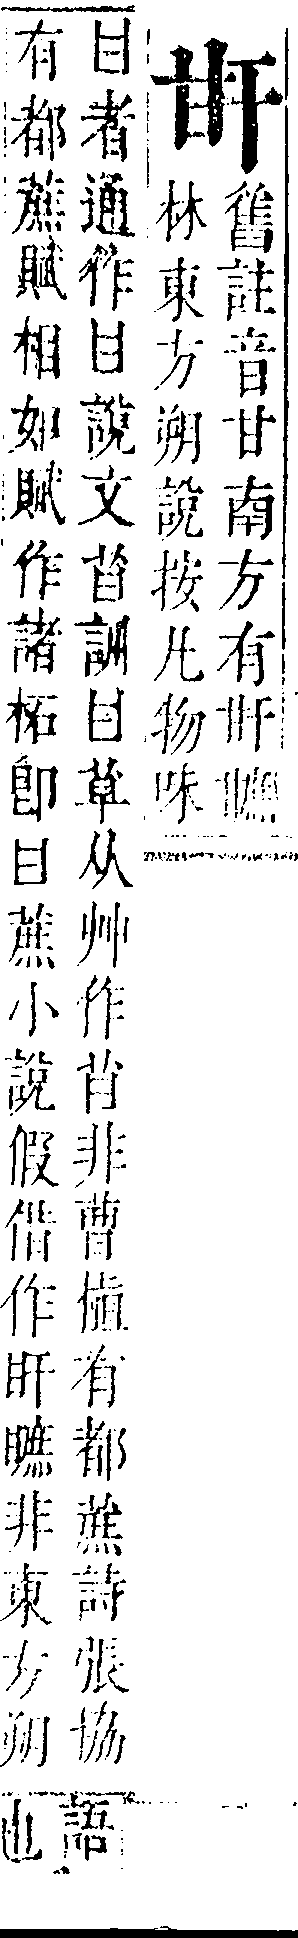 ⿰甘干
舊註音甘南方有⿰甘干⿰甘蔗
林東方朔說按凡物味
甘者通作甘說文苷訓甘草从艸作苷非曹植有都蔗詩張協
有都蔗賦相如賦作諸柘卽甘蔗小說假借作⿰甘干⿰甘蔗非東方朔
語
也